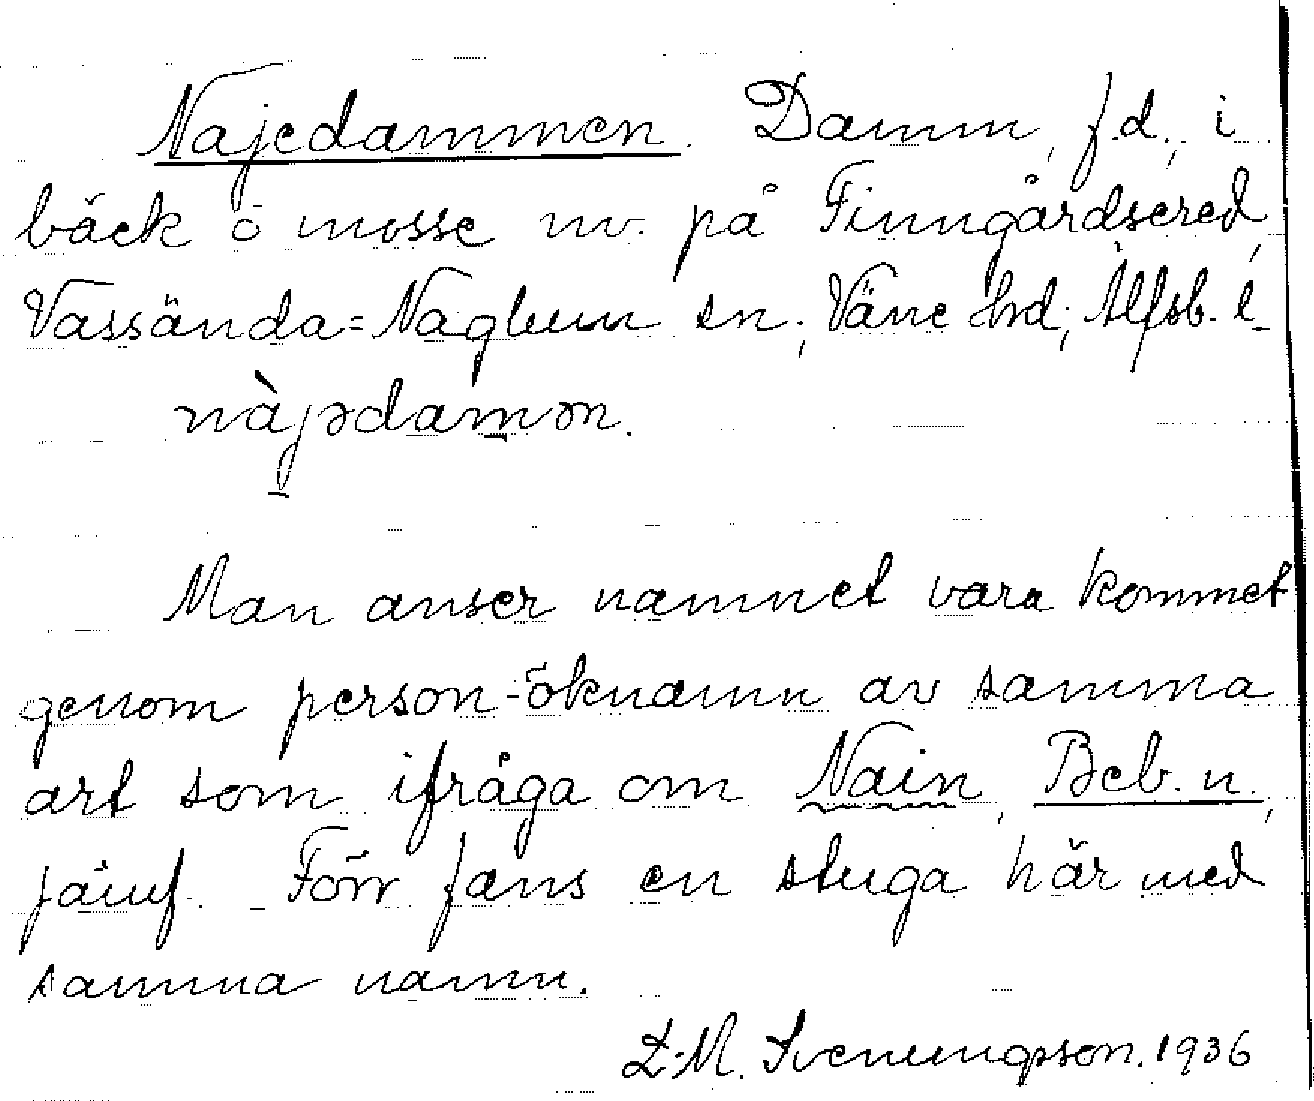 Najedammen. Damm, f.d., i
bäck o mosse nv. på Finngårdsered,
Vassända=Naglum sn; Väne hd; Älfsb. l.
nàjədamən.
Man anser namnet vara kommet
genom person-öknamn av samma
art som ifråga om Nain, Beb. n.,
jämf. Förr fans en stuga här med
samma namn.
L.M. Svenungsson. 1936